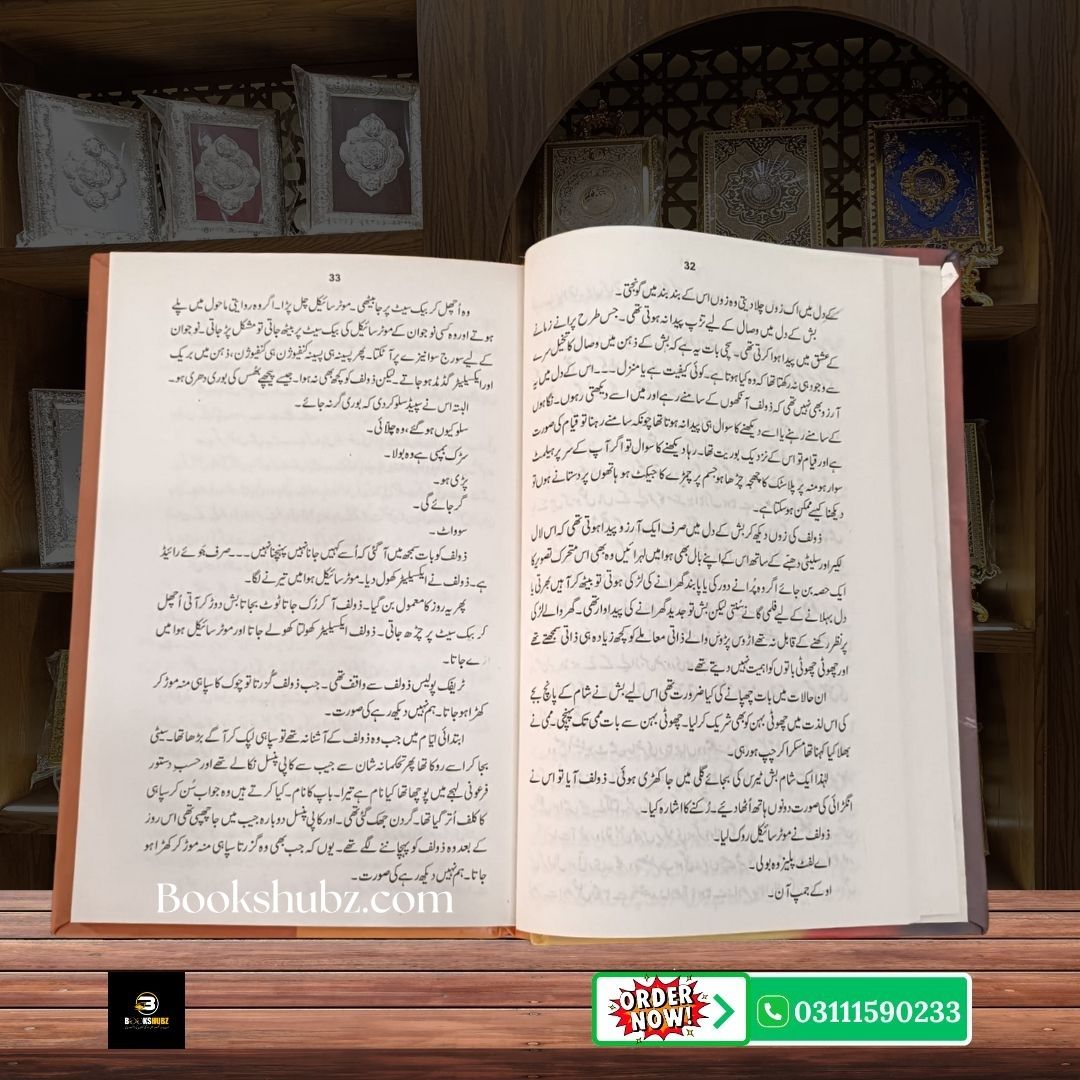 32
کے دل میں اک زوں چلا دیتی وہ زوں اس کے بند بند میں گونجتی۔
بش کے دل میں وصال کے لیے تڑپ پیدا نہ ہوتی تھی۔ جس طرح پرانے زمانے
کے عشق میں پیدا ہوا کرتی تھی۔ سچی بات یہ ہے کہ بش کے ذہن میں وصال کا تخیل سرے
سے وجود ہی نہ رکھتا تھا کہ وہ کیا ہوتا ہے۔ کوئی کیفیت ہے یا منزل۔۔۔ اس کے دل میں یہ
آرزو بھی نہیں تھی کہ ذولف آنکھوں کے سامنے رہے اور میں اسے دیکھتی رہوں۔ نگاہوں
کے سامنے رہنے یا اسے دیکھنے کا سوال ہی پیدا نہ ہوتا تھا چونکہ سامنے رہنا تو قیام کی صورت
ہے اور قیام تو اس کے نزدیک بوریت تھا۔ رہا دیکھنے کا سوال تو اگر آپ کے سر پر ہیلمٹ
سوار ہو منہ پر پلاسٹک کا چھجہ چڑھا ہو جسم پر چمڑے کا جیکٹ ہو ہاتھوں پر دستانے ہوں تو
دیکھنا کیسے ممکن ہو سکتا ہے۔
ذولف کی زوں دیکھ کر بش کے دل میں صرف ایک آرزو پیدا ہوتی تھی کہ اس لال
لکیر اور سلیٹی دھبے کے ساتھ اس کے اپنے بال بھی ہوا میں لہرائیں وہ بھی اس متحرک تصویر کا
ایک حصہ بن جائے اگر وہ پُرانے دور کی یا پابند گھرانے کی لڑکی ہوتی تو بیٹھ کر آہیں بھرتی یا
دل بہلانے کے لیے فلمی گانے سُنتی لیکن بش تو جدید گھرانے کی پیداوار تھی۔ گھر والے لڑکی
پر نظر رکھنے کے قابل نہ تھے اڑوس پڑوس والے ذاتی معاملے کو کچھ زیادہ ہی ذاتی سمجھتے تھے
اور چھوٹی چھوٹی باتوں کو اہمیت نہیں دیتے تھے۔
ان حالات میں بات چھپانے کی کیا ضرورت تھی اس لیے بش نے شام کے پانچ بجے
کی اس لذت میں چھوٹی بہن کو بھی شریک کر لیا۔ چھوٹی بہن سے بات ممی تک پہنچی۔ ممی نے
بھلا کیا کہنا تھا مسکرا کر چپ ہو رہی۔
لہٰذا ایک شام بش ٹیرس کی بجائے گلی میں جا کھڑی ہوئی۔ ذولف آیا تو اس نے
انگڑائی کی صورت دونوں ہاتھ اُٹھا دیئے۔ رُکنے کا اشارہ کیا۔
ذولف نے موٹر سائیکل روک لیا۔
اے لفٹ پلیز وہ بولی۔
او کے جمپ آن۔
33
وہ اُچھل کر بیک سیٹ پر جا بیٹھی۔ موٹر سائیکل چل پڑا۔ اگر وہ روایتی ماحول میں پلے
ہوتے اور وہ کسی نوجوان کے موٹر سائیکل کی بیک سیٹ پر بیٹھ جاتی تو مشکل پڑ جاتی۔ نوجوان
کے لیے سورج سوا نیزے پر آ نکلتا۔ پھر پسینہ ہی پسینہ کنفیوژن ہی کنفیوژن، ذہن میں بریک
اور ایکسیلیٹر گڈمڈ ہو جاتے۔ لیکن ذولف کو کچھ بھی نہ ہوا۔ جیسے پیچھے بھُس کی بوری دھری ہو۔
البتہ اس نے سپیڈ سلو کر دی کہ بوری گر نہ جائے۔
سلو کیوں ہو گئے، وہ چلائی۔
سڑک بمپی ہے وہ بولا۔
پڑی ہو۔
گر جائے گی۔
سو واٹ۔
ذولف کو بات سمجھ میں آ گئی کہ اُسے کہیں جانا نہیں پہنچنا نہیں۔۔۔ صرف جوئے رائیڈ
ہے۔ ذولف نے ایکسیلیٹر کھول دیا۔ موٹر سائیکل ہوا میں تیرنے لگا۔
پھر یہ روز کا معمول بن گیا۔ ذولف آ کر رُک جاتا ٹوٹ بجاتا بش دوڑ کر آتی اُچھل
کر بیک سیٹ پر چڑھ جاتی۔ ذولف ایکسیلیٹر کھولتا کھولے جاتا اور موٹر سائیکل ہوا میں
اڑے جاتا۔
ٹریفک پولیس ذولف سے واقف تھی۔ جب ذولف گزرتا تو چوک کا سپاہی منہ موڑ کر
کھڑا ہو جاتا۔ ہم نہیں دیکھ رہے کی صورت۔
ابتدائی ایّام میں جب وہ ذولف کے آشنا نہ تھے تو سپاہی لپک کر آگے بڑھا تھا۔ سیٹی
بجا کر اسے روکا تھا پھر تحکمانہ شان سے جیب سے کاپی پنسل نکالے تھے اور حسب دستور
فرعونی لہجے میں پوچھا تھا کیا نام ہے تیرا۔ باپ کا نام۔ کیا کرتے ہیں وہ جواب سُن کر سپاہی
کا کلف اُتر گیا تھا۔ گردن جھک گئی تھی۔ اور کاپی پنسل دوبارہ جیب میں جا چھپی تھی اس روز
کے بعد وہ ذولف کو پہچاننے لگے تھے۔ یوں کہ جب بھی وہ گزرتا سپاہی منہ موڑ کر کھڑا ہو
جاتا۔ ہم نہیں دیکھ رہے کی صورت۔
Bookshubz.com
BOOKSHUBZ
ORDER NOW!
03111590233